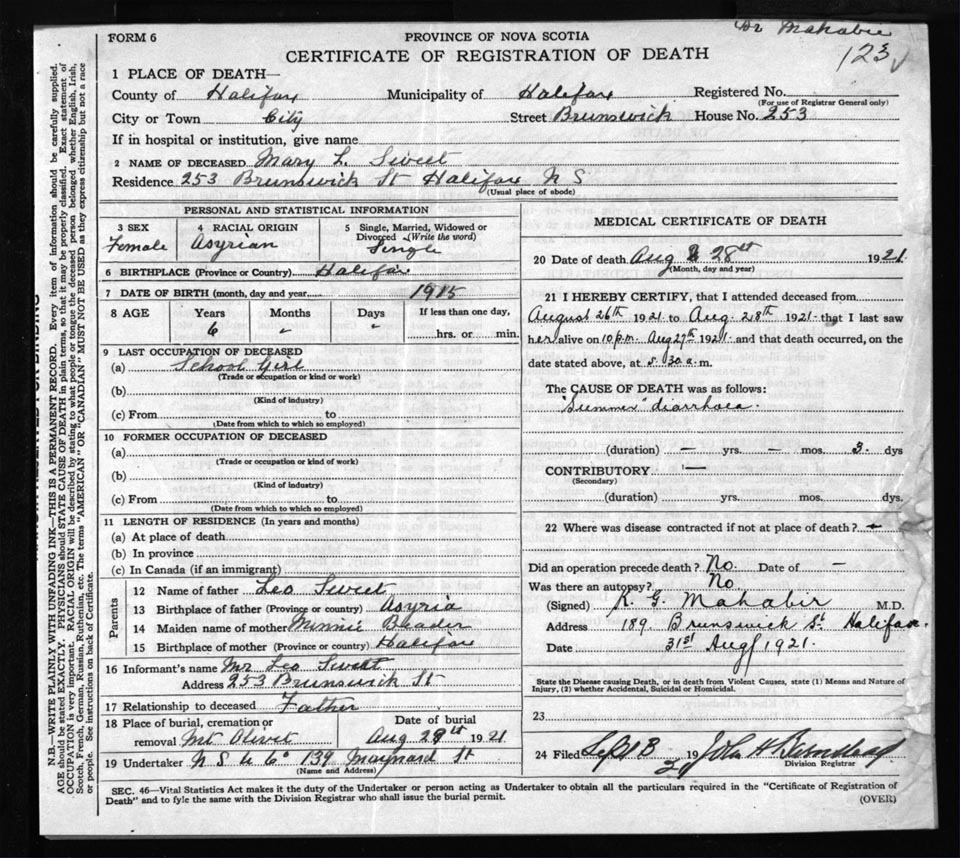 Dr Mahabir
123
FORM 6
PROVINCE OF NOVA SCOTIA
CERTIFICATE OF REGISTRATION OF DEATH
1 PLACE OF DEATH—
County of Halifax Municipality of Halifax Registered No.
(For use of Registrar General only)
City or Town City Street Brunswick House No. 253
If in hospital or institution, give name
2 NAME OF DECEASED Mary L. Sweet
Residence 253 Brunswick St Halifax N S
(Usual place of abode)
PERSONAL AND STATISTICAL INFORMATION
3 SEX 4 RACIAL ORIGIN 5 Single, Married, Widowed or Divorced (Write the word)
Female Asyrian Single
6 BIRTHPLACE (Province or Country) Halifax
7 DATE OF BIRTH (month, day and year) 1915
8 AGE Years Months Days If less than one day,
6 " " hrs. or min.
9 LAST OCCUPATION OF DECEASED
(a) School Girl
(Trade or occupation or kind or work)
(b)
(Kind of industry)
(c) From to
(Date from which to which so employed)
10 FORMER OCCUPATION OF DECEASED
(a)
(Trade or occupation or kind of work)
(b)
(Kind of industry)
(c) From to
(Date from which to which so employed)
11 LENGTH OF RESIDENCE (In years and months)
(a) At place of death
(b) In province
(c) In Canada (if an immigrant)
Parents
12 Name of father Leo Sweet
13 Birthplace of father (Province or country) Asyria
14 Maiden name of mother Minnie
15 Birthplace of mother (Province or country) Halifax
16 Informant's name Mr Leo Sweet
Address 253 Brunswick St
17 Relationship to deceased Father
18 Place of burial, cremation or removal Mt Olivet
Date of burial Aug 29 1921
19 Undertaker N S U Co 139 Maynard St
(Name and Address)
MEDICAL CERTIFICATE OF DEATH
20 Date of death Aug 28th 1921.
(Month, day and year)
21 I HEREBY CERTIFY, that I attended deceased from
August 26th 1921 to Aug. 28th 1921 that I last saw
her alive on 10 p.m. Aug 27th 1921 and that death occurred, on the
date stated above, at 5.30 a. m.
The CAUSE OF DEATH was as follows:
"Summer" diarrhoea.
(duration) — yrs. — mos. 3. dys
CONTRIBUTORY —
(Secondary)
(duration) yrs. mos. dys.
22 Where was disease contracted if not at place of death? —
Did an operation precede death? No. Date of —
Was there an autopsy? No
(Signed) K. G. Mahabir M.D.
Address 189. Brunswick St. Halifax.
Date 31st Aug 1921.
State the Disease causing Death, or in death from Violent Causes, state (1) Means and Nature of
Injury, (2) whether Accidental, Suicidal or Homicidal.
23
24 Filed 19 21 John H
Division Registrar
SEC. 46—Vital Statistics Act makes it the duty of the Undertaker or person acting as Undertaker to obtain all the particulars required in the "Certificate of Registration of
Death" and to fyle the same with the Division Registrar who shall issue the burial permit.
(OVER)
N.B.—WRITE PLAINLY WITH UNFADING INK—THIS IS A PERMANENT RECORD. Every item of information should be carefully supplied.
AGE should be stated EXACTLY. PHYSICIANS should STATE CAUSE OF DEATH in plain terms, so that it may be properly classified. Exact statement of
OCCUPATION is very important. RACIAL ORIGIN will be described by stating to what people or tongue the deceased person belonged whether English, Irish,
Scotch, French, German, Russian, Ruthenian, etc. The terms "AMERICAN" OR "CANADIAN" MUST NOT BE USED as they express citizenship but not a race
or people. See instructions on back of Certificate.